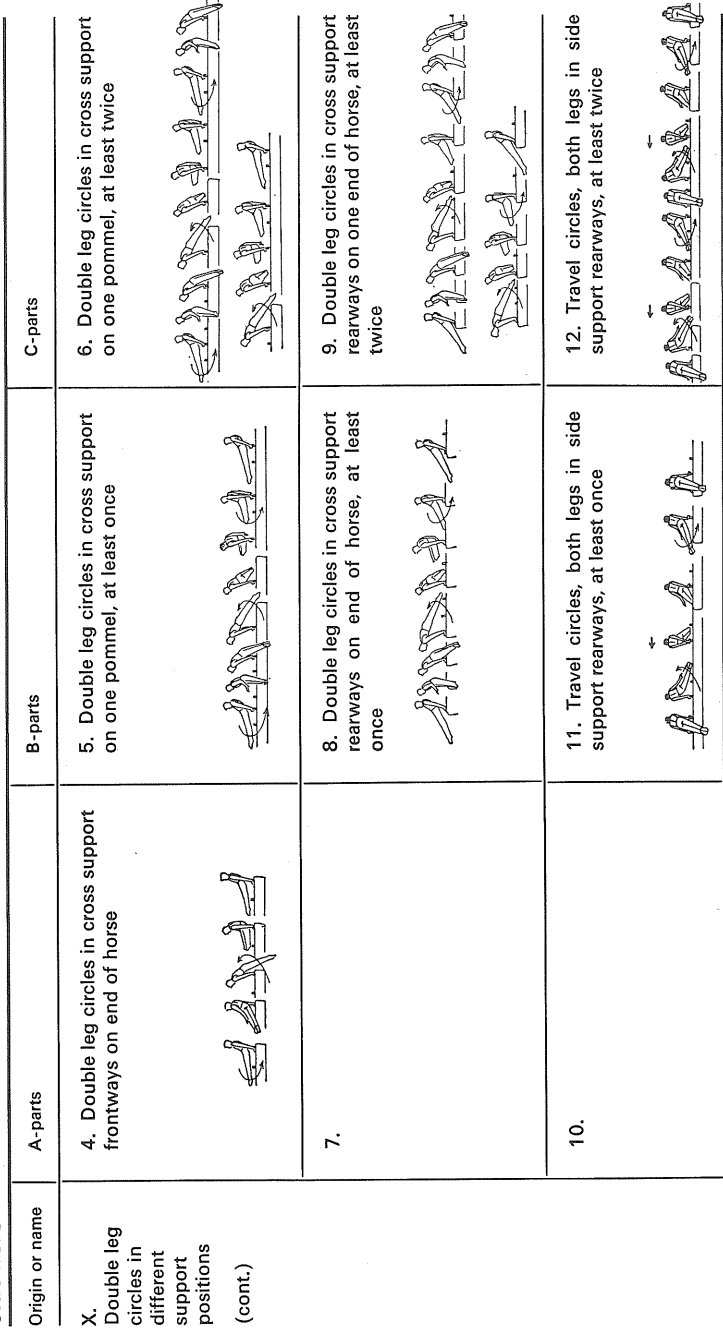 Origin or name
A-parts
B-parts
C-parts
X.
Double leg
circles in
different
support
positions
(cont.)
4. Double leg circles in cross support
frontways on end of horse
5. Double leg circles in cross support
on one pommel, at least once
6. Double leg circles in cross support
on one pommel, at least twice
7.
8. Double leg circles in cross support
rearways on end of horse, at least
once
9. Double leg circles in cross support
rearways on one end of horse, at least
twice
10.
11. Travel circles, both legs in side
support rearways, at least once
12. Travel circles, both legs in side
support rearways, at least twice